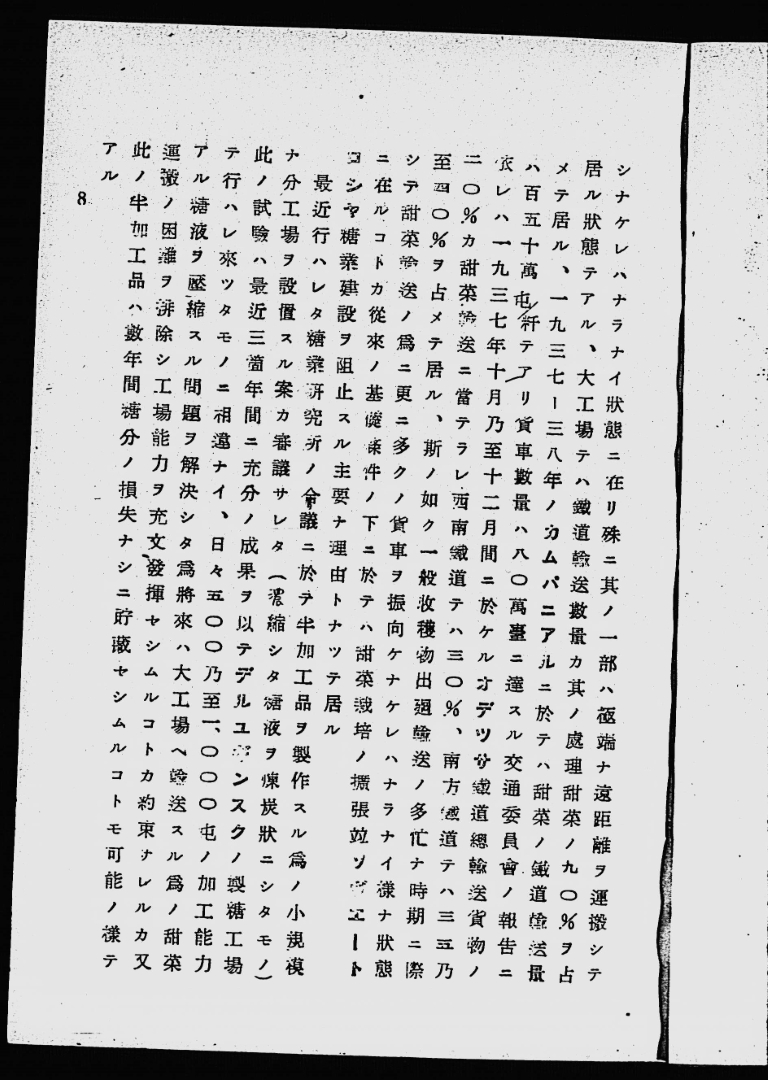 シナケレハナラナイ狀態ニ在リ殊ニ其ノ一部ハ極端ナ遠距離ヲ運搬シテ
居ル狀態テアル、大工場テハ鐵道輸送數量カ其ノ處理甜菜ノ九〇%ヲ占
メテ居ル、一九三七ー三八年ノカムパニアルニ於テハ甜菜ノ鐵道輸送量
ハ百五十萬屯/粁テアリ貨車數量ハ八〇萬臺ニ達スル交通委員會ノ報告ニ
依レハ一九三七年十月乃至十二月間ニ於ケルオデツサ鐵道總輸送貨物ノ
二〇%カ甜菜輸送ニ當テラレ西南鐵道テハ三〇%、南方鐵道テハ三五乃
至四〇%ヲ占メテ居ル、斯ノ如ク一般收穫物出廻輸送ノ多忙ナ時期ニ際
シテ甜菜輸送ノ爲ニ更ニ多クノ貨車ヲ振向ケナケレハナラナイ樣ナ狀態
ニ在ルコトカ從來ノ基礎條件ノ下ニ於テハ甜菜栽培ノ擴張竝ソヴエート
ロシヤ糖業建設ヲ阻止スル主要ナ理由トナツテ居ル
最近行ハレタ糖業硏究所ノ會議ニ於テ半加工品ヲ製作スル爲ノ小規模
ナ分工場ヲ設置スル案カ審議サレタ(濃縮シタ糖液ヲ煉炭狀ニシタモノ)
此ノ試驗ハ最近三箇年間ニ充分ノ成果ヲ以テデルユギンスクノ製糖工場
テ行ハレ來ツタモノニ相違ナイ、日々五〇〇乃至一、〇〇〇屯ノ加工能力
アル糖液ヲ壓縮スル問題ヲ解決シタ爲將來ハ大工場ヘ輸送スル爲ノ甜菜
運搬ノ困難ヲ排除シ工場能力ヲ充文發揮セシムルコトカ約束ナレルカ又
此ノ半加工品ハ數年間糖分ノ損失ナシニ貯藏セシムルコトモ可能ノ樣テ
アル
8